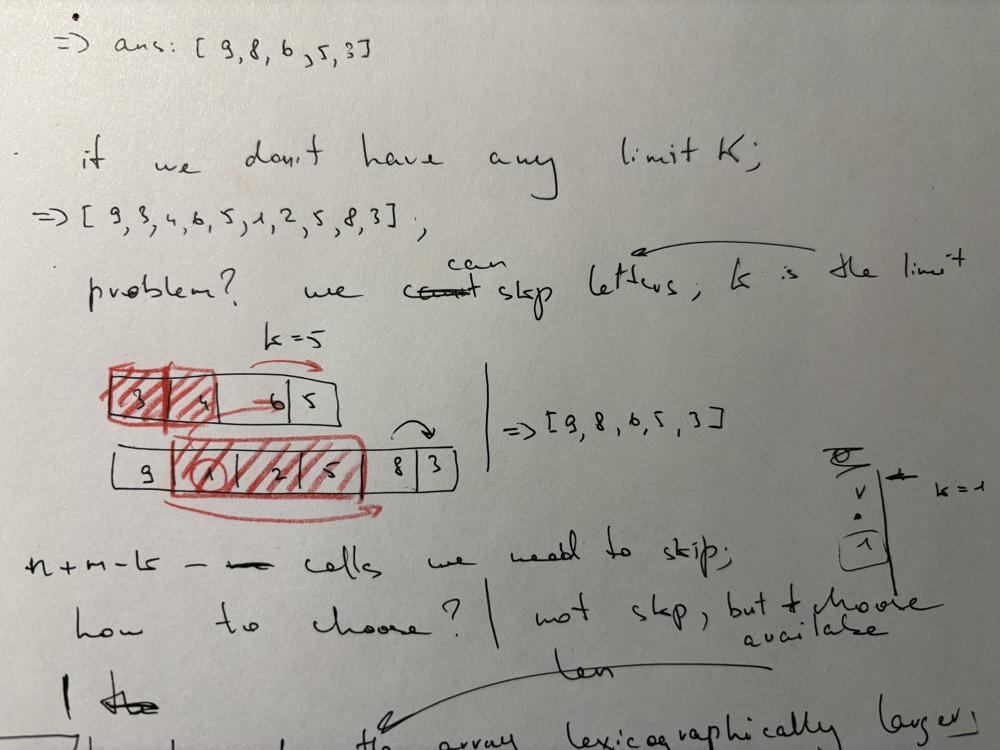 => ans: [ 9, 8, 6, 5, 3]
if we don't have any limit K;
=> [ 9, 3, 4, 6, 5, 1, 2, 5, 8, 3 ] ,
can
problem? we skip letters, k is the limit
k = 5
3 4 6 5
9 1 2 5 8 3
=> [9, 8, 6, 5, 3]
v
k = 1
1
n + m - k - cells we need to skip;
how to choose? | not skp, but choose
available
len
the array lexicographically larger;